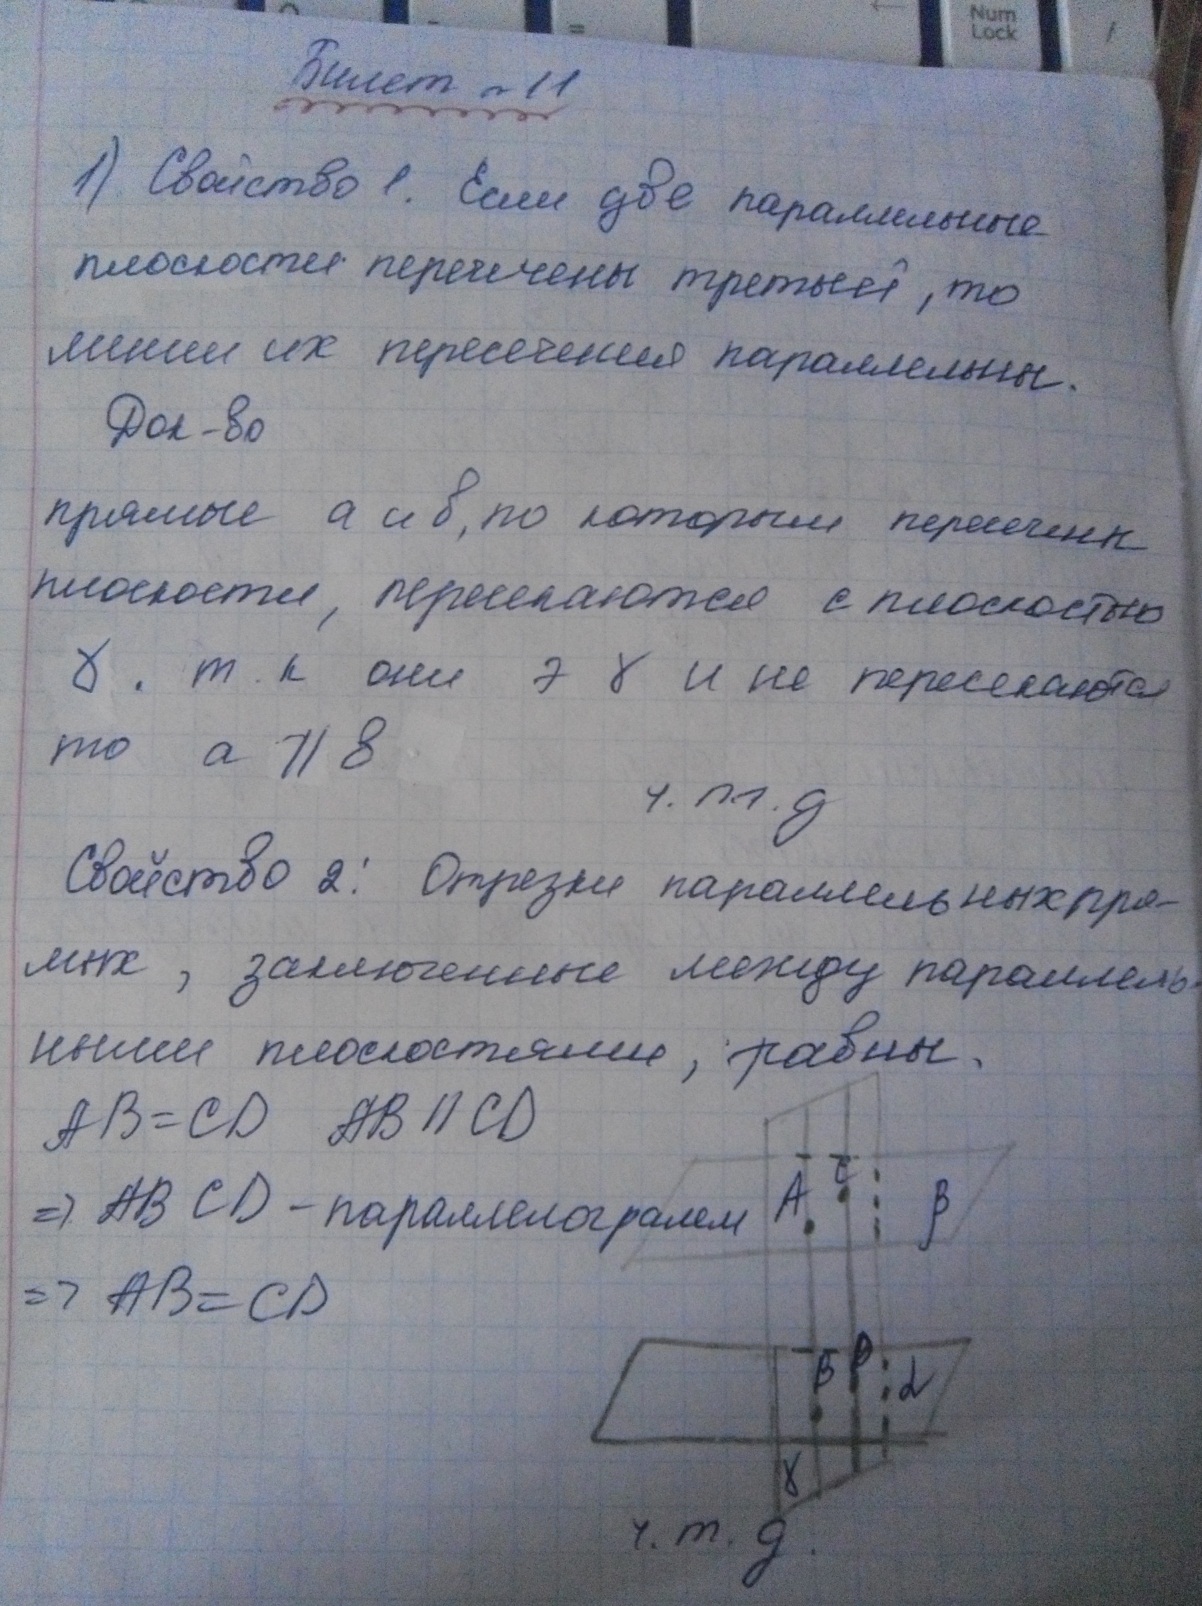 Num
Lock
=
Билет N 11
1) Свойство 1. Если две параллельные
плоскости пересечены третьей, то
линии их пересечения параллельны.
Док-во
прямые а и б, по которым пересечен
плоскости, пересекаются с плоскостью
γ. т.к они э γ и не пересекаются
то а || в
ч.т.д
Свойство 2: Отрезки параллельных пря-
мых, заключенные между параллель-
ными плоскостями, равны.
AB=CD AB || CD
=> ABCD - параллелограмм
=> AB=CD
A C β
B D α
γ
ч.т.д.